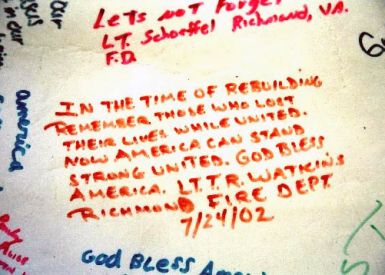 Lets not Forget
LT. Schoeffel Richmond, VA.
F.D.
IN THE TIME OF REBUILDING
REMEMBER THOSE WHO LOST
THEIR LIVES WHILE UNITED.
NOW AMERICA CAN STAND
STRONG UNITED. GOD BLESS
AMERICA. LT. T. R. WATKINS
RICHMOND FIRE DEPT.
7/24/02
America
GOD BLESS